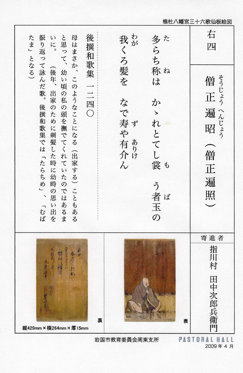 椎杜八幡宮三十六歌仙板絵図
右四
僧正遍昭（僧正遍照）
そうじょう へんじょう
多らち称は かゝれとてし裳 う者玉の
た ね も ば
我くろ髪を なで寿や有介ん
わが ず ありけ
後撰和歌集 一二四〇
母はまさか、このようなことになる（出家する）こともある
と思って、幼い頃の私の頭を撫でてくれていたのではあるま
いに。（後年、出家のために剃髪した時に幼時の思い出を
振り返って詠んだ歌。後撰和歌集では「たらちめ」、「むば
たま」となる）
寄進者
指川村 田中次郎兵衛門
裏
表
縦429mm×横264mm×厚15mm
岩国市教育委員会周東支所
PASTORAL HALL
2009年4月